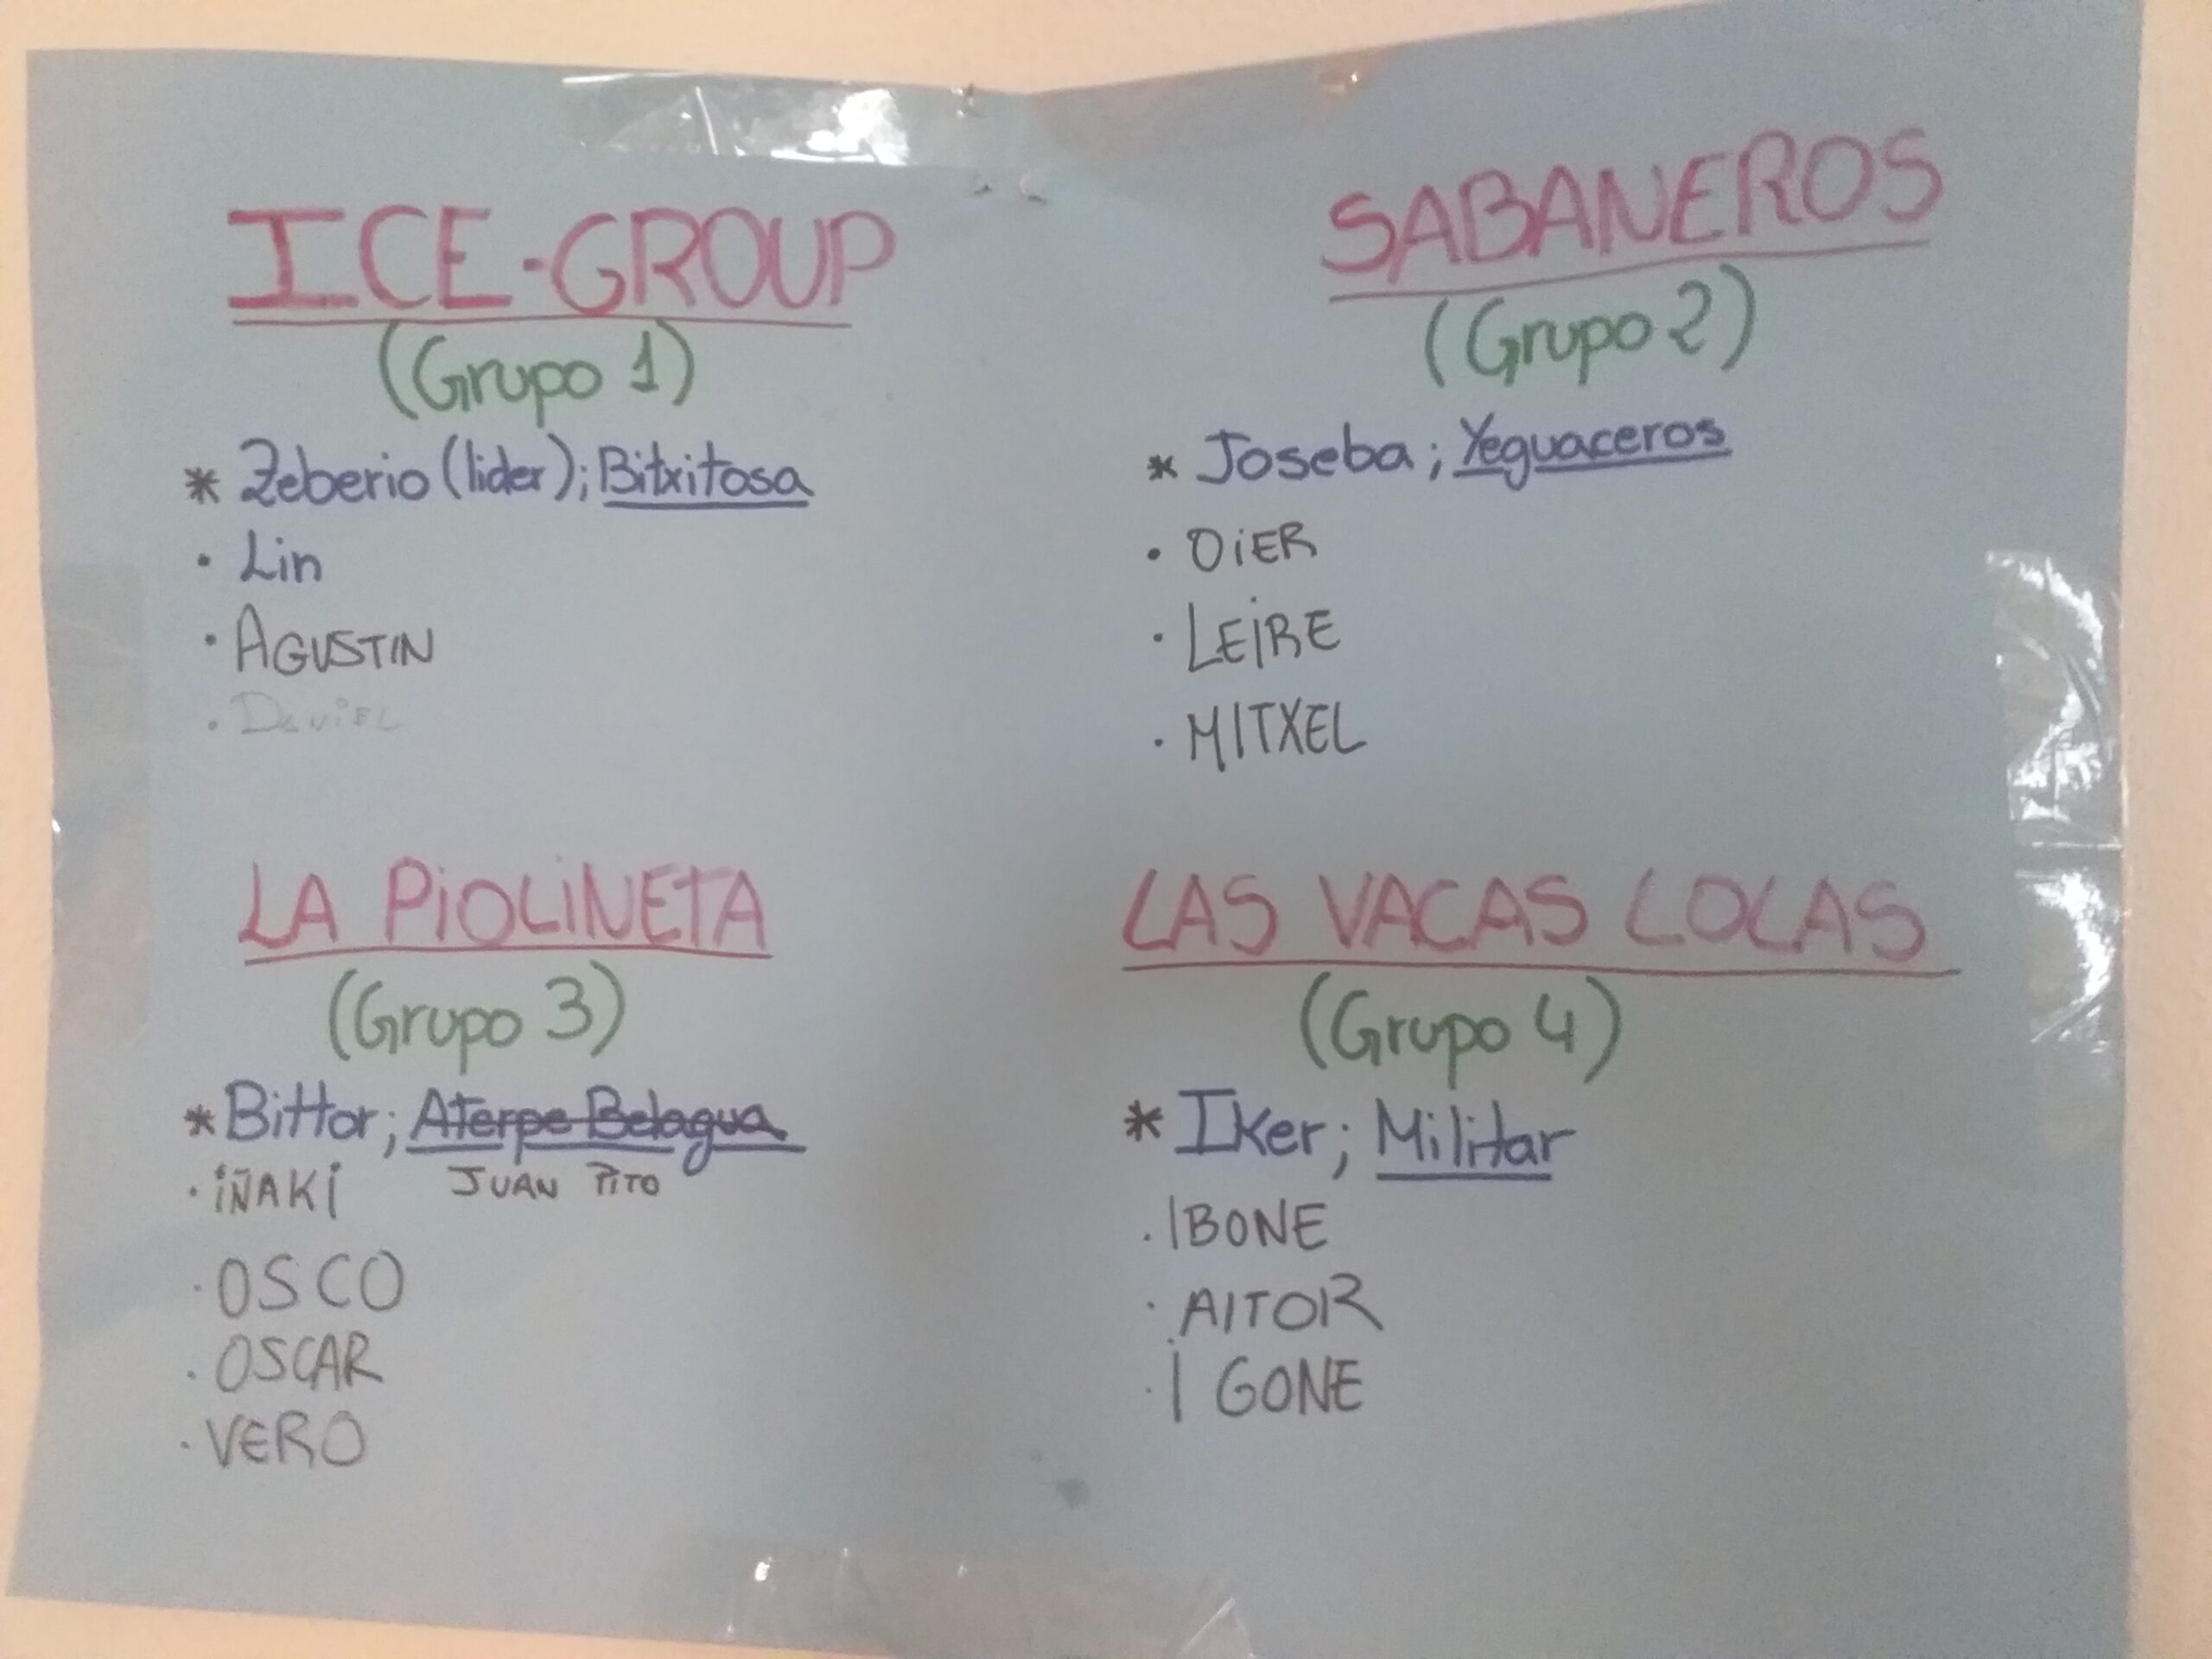 ICE-GROUP
(Grupo 1)
* Zeberio (lider); Bitxitosa
· Lin
· AGUSTIN
· DaViEL
SABANEROS
(Grupo 2)
* Joseba; Yeguaceros
· OiER
· LEiRE
· MITXEL
LA PiOLiNETA
(Grupo 3)
* Bittor; Aterpe Belagua
· iÑAKi JUAN PITO
· OSCO
· OSCAR
· VERO
LAS VACAS LOCAS
(Grupo 4)
* Iker; Militar
· IBONE
· AITOR
· I GONE